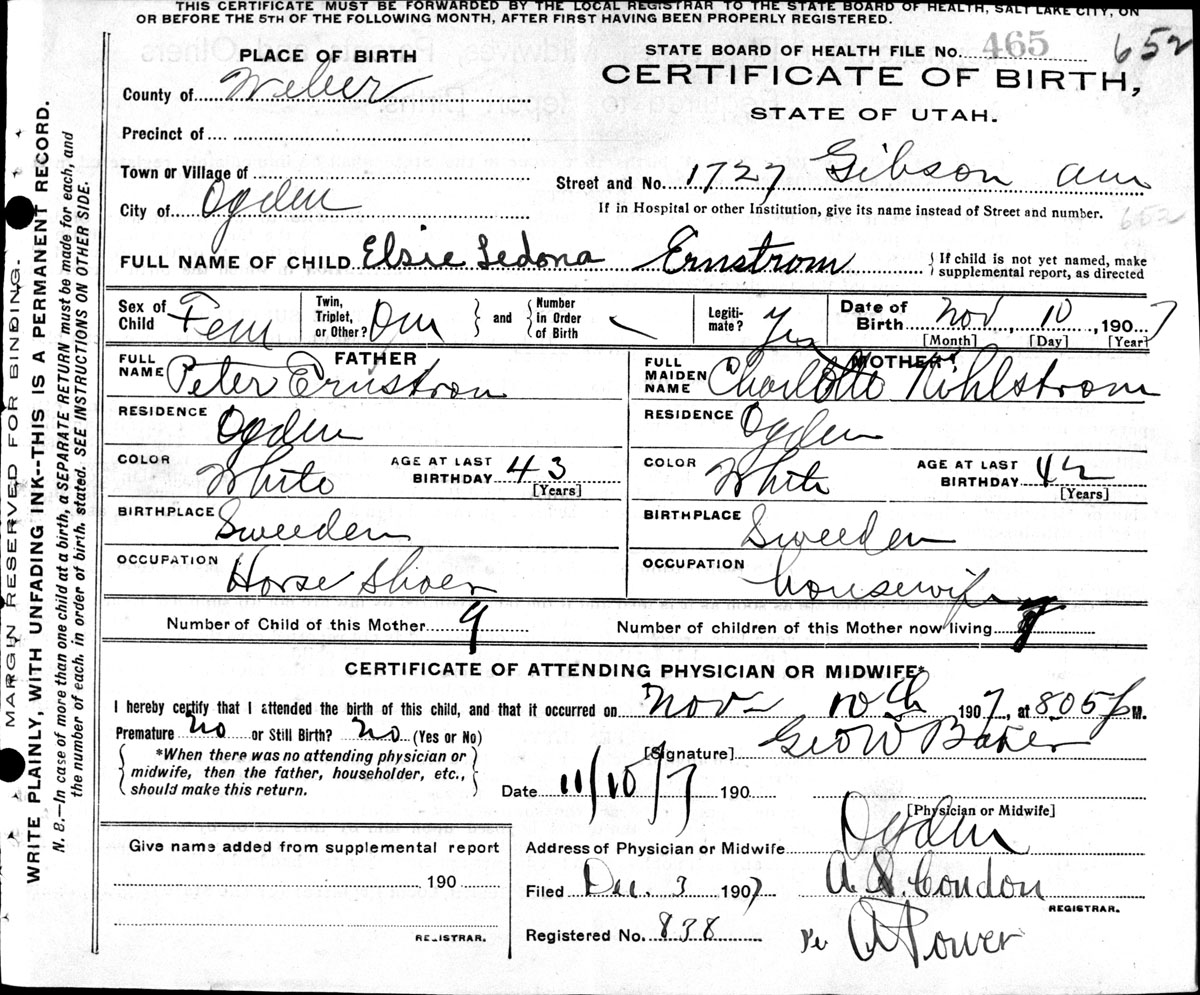 THIS CERTIFICATE MUST BE FORWARDED BY THE LOCAL REGISTRAR TO THE STATE BOARD OF HEALTH, SALT LAKE CITY, ON
OR BEFORE THE 5TH OF THE FOLLOWING MONTH, AFTER FIRST HAVING BEEN PROPERLY REGISTERED.
STATE BOARD OF HEALTH FILE NO. 465 652
PLACE OF BIRTH
CERTIFICATE OF BIRTH,
STATE OF UTAH.
County of Weber
Precinct of
Town or Village of
City of Ogden
Street and No. 1727 Gibson
If in Hospital or other Institution, give its name instead of Street and number.
652
FULL NAME OF CHILD Elsie Ledona Ernstrom { If child is not yet named, make supplemental report, as directed
Sex of Child Fem
Twin, Triplet, or Other? } and { Number in Order of Birth
Legitimate? Yes
Date of Birth Nov, 10, 1907
[Month] [Day] [Year]
FATHER
FULL NAME Peter Ernstrom
RESIDENCE Ogden
COLOR White AGE AT LAST BIRTHDAY 43 [Years]
BIRTHPLACE Sweeden
OCCUPATION Horse Shoer
MOTHER
FULL MAIDEN NAME Charlotte Kihlstrom
RESIDENCE Ogden
COLOR White AGE AT LAST BIRTHDAY 42 [Years]
BIRTHPLACE Sweeden
OCCUPATION housewife
Number of Child of this Mother 9 Number of children of this Mother now living
CERTIFICATE OF ATTENDING PHYSICIAN OR MIDWIFE*
I hereby certify that I attended the birth of this child, and that it occurred on Nov 10th 1907, at 805 P M.
Premature No or Still Birth? No (Yes or No)
[Signature] Geo W Baker
{ *When there was no attending physician or midwife, then the father, householder, etc., should make this return. }
Date 11/10/7 190
[Physician or Midwife]
Address of Physician or Midwife Ogden
Give name added from supplemental report
190
REGISTRAR.
Filed Dec. 3 1907 A. S. Condon
REGISTRAR.
Registered No. 838 Per A Power
MARGIN RESERVED FOR BINDING.
WRITE PLAINLY, WITH UNFADING INK--THIS IS A PERMANENT RECORD.
N. B.—In case of more than one child at a birth, a SEPARATE RETURN must be made for each, and
the number of each, in order of birth, stated. SEE INSTRUCTIONS ON OTHER SIDE.